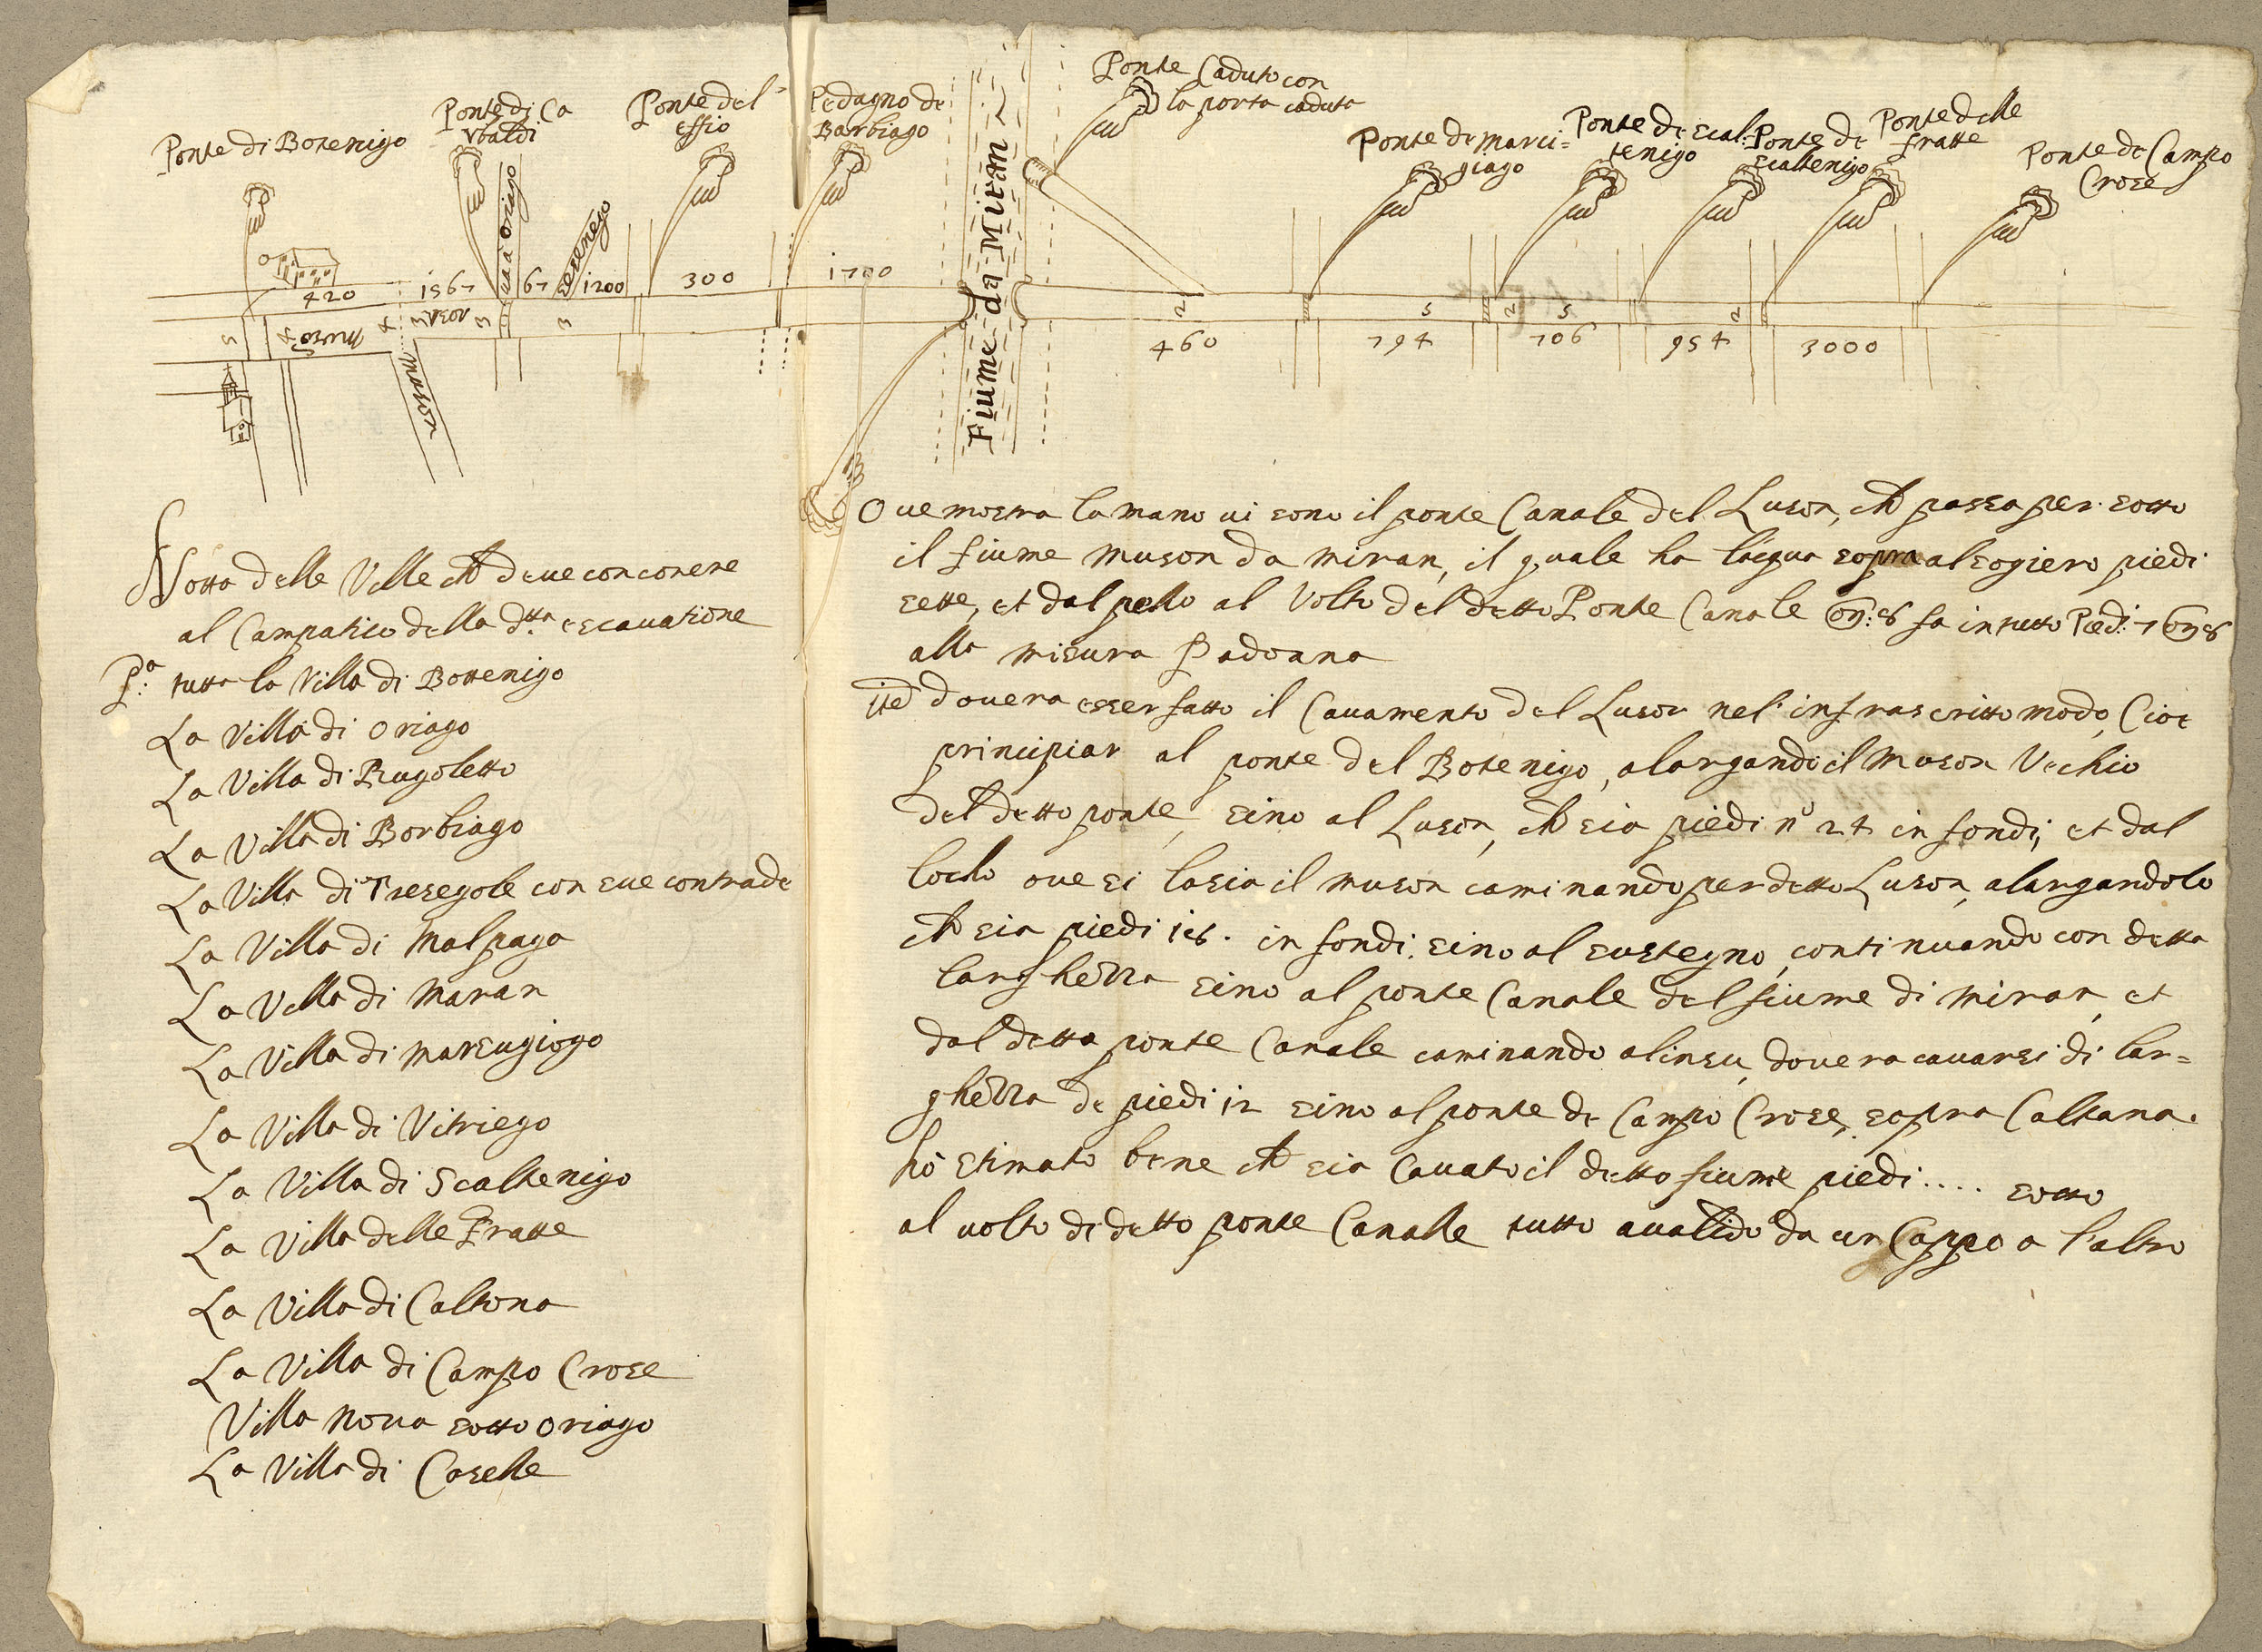 Ponte di Botenigo
Ponte di Ca
Vbaldi
Ponte del
effio
Pedagno de
Barbiago
Ponte Caduto con
la porta caduta
Ponte de Marci=
giago
Ponte de Scal=
tenigo
Ponte de
Scaltenigo
Ponte delle
fratte
Ponte de Campo
Crose
420
1567
ua à Oriago
67
Seresego
1200
300
1700
Fiume da Miran
5
4
Muson
4
3
3
3
Muson
2
5
2
5
2
460
794
706
954
3000
Notta delle Ville che deue concorere
al Campatico della d.tta escauatione
P.a tutta la Villa di Bottenigo
La Villa di Oriago
La Villa di Rugoletto
La Villa di Borbiago
La Villa di Tresegole con sue contrade
La Villa di Malpaga
La Villa di Maran
La Villa di Marsugiogo
La Villa di Vitriego
La Villa di Scaltenigo
La Villa delle Fratte
La Villa di Caltona
La Villa di Campo Crose
Villa Noua sotto Oriago
La Villa di Caselle
Oue mostra la mano ui sono il ponte Canale del Luson, che passa per sotto
il fiume Muson da Miran, il quale ha l'acqua sopra al sogiero piedi
sette, et dal pello al Volto del detto Ponte Canale on: 8 fa in tutto Piedi: 7 on 8
alla misura Padoana
ite douera esser fatto il Cauamento del Luson nel' infrascritto modo, Cioe
principiar al ponte del Botenigo, alargando il Muson Vechio
del detto ponte, sino al Luson, che sia piedi n.o 24 in fondi, et dal
locho oue si lasia il Muson caminando per detto Luson, alargandolo
che sia piedi 16. in fondi. sino al sustegno, continuando con detta
larghezza sino al ponte Canale del fiume di Miran, et
dal detto ponte Canale caminando alinsu, douera cauarsi di lar=
ghezza de piedi 12 sino al ponte de Campo Crose, sopra Caltana.
hò stimato bene che sia Cauato il detto fiume piedi .... sotto
al uolto di detto ponte Canalle tutto aualido da un Cappo a l'altro